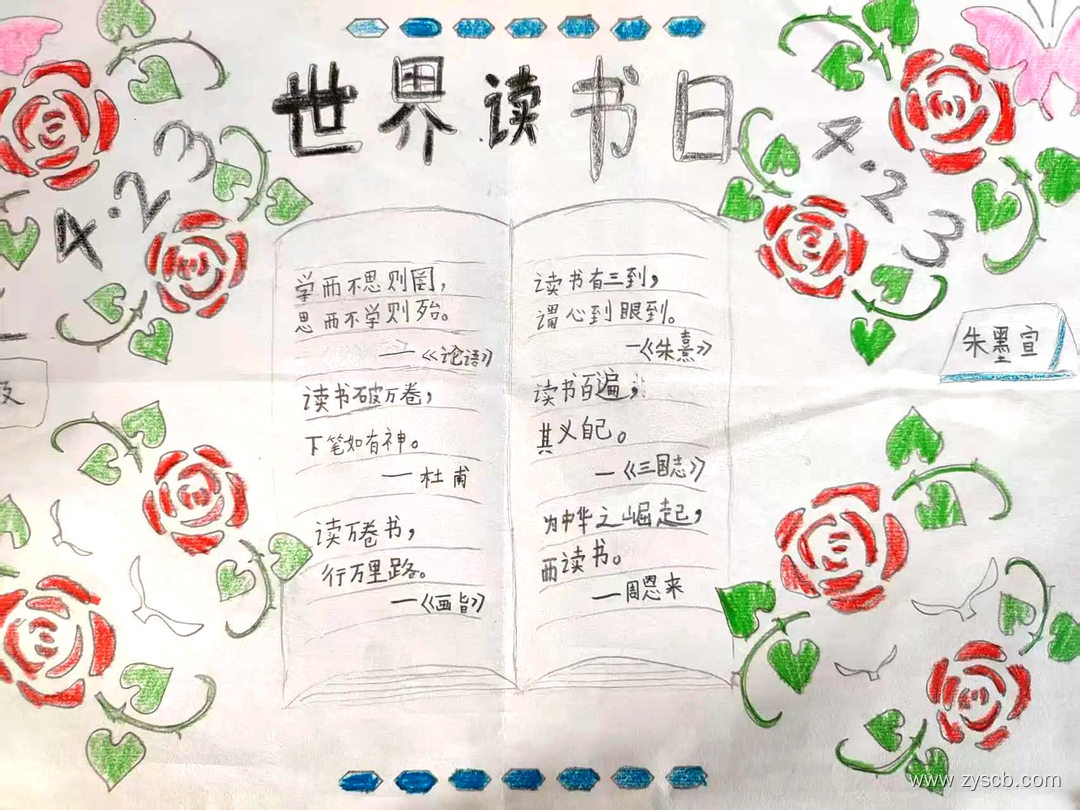 世界读书日
4.23
4.23
学而不思则罔，
思而不学则殆。
—《论语》
读书破万卷，
下笔如有神。
—杜甫
读万卷书，
行万里路。
—《画旨》
读书有三到，
谓心到眼到。
—《朱熹》
读书百遍，
其义自己。
—《三国志》
为中华之崛起，
西读书。
—周恩来
朱墨宣
www.zyscb.com